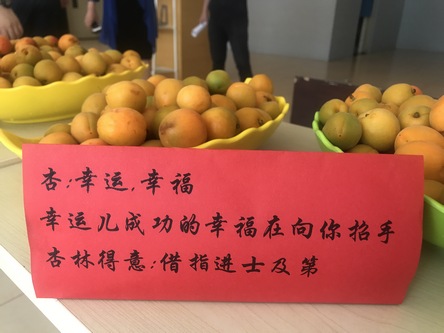 杏:幸运,幸福
幸运儿成功的幸福在向你招手
杏林得意:借指进士及第